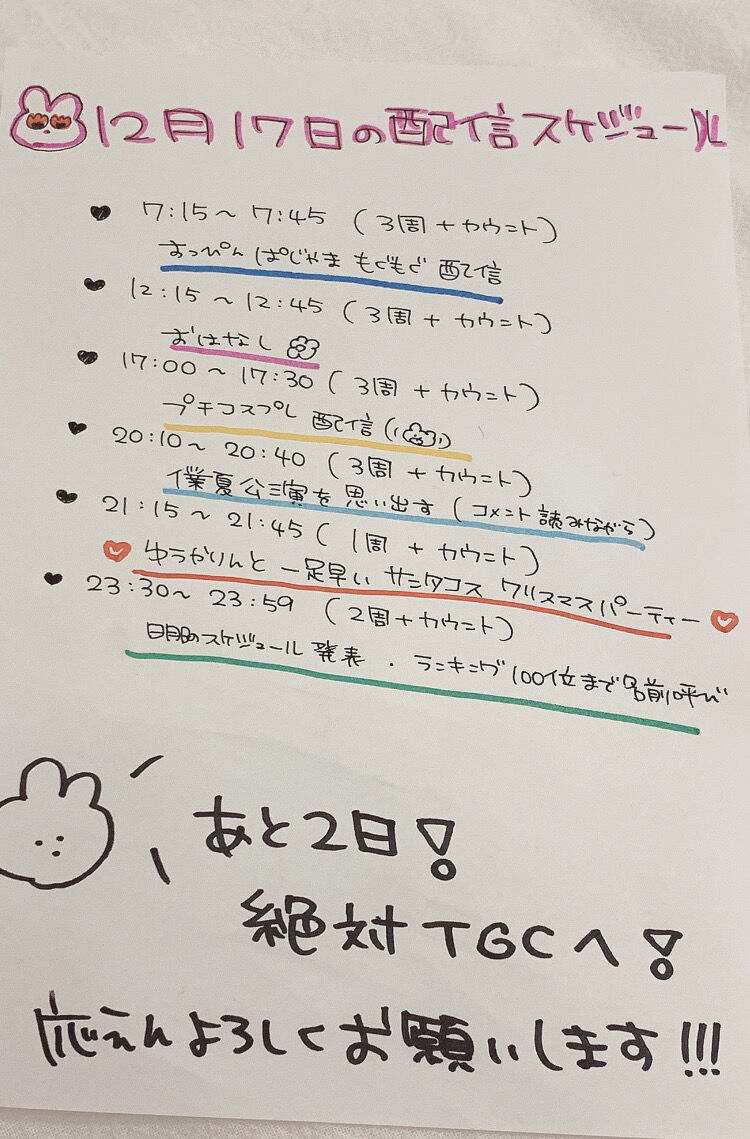 12月17日の配信スケジュール
7:15〜7:45 (3周+カウント)
すっぴんぱじゃまもぐもぐ配信
12:15〜12:45 (3周+カウント)
おはなし
17:00〜17:30 (3周+カウント)
プチコスプレ配信
20:10〜20:40 (3周+カウント)
僕夏公演を思い出す(コメント読みながら)
21:15〜21:45 (1周+カウント)
ゆうかりんと一足早いサンタコスクリスマスパーティー
23:30〜23:59 (2周+カウント)
明日のスケジュール発表・ランキング100位まで名前呼び
あと2日!
絶対TGCへ!
応えんよろしくお願いします!!!